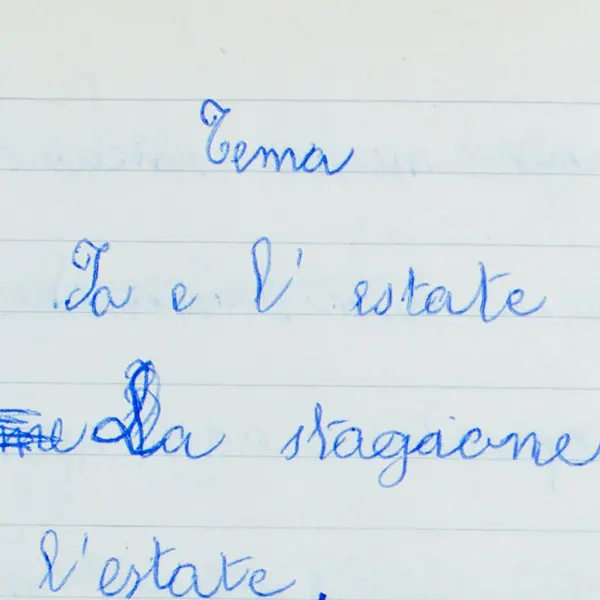 Tema
Io e l' estate
La stagione
l'estate.